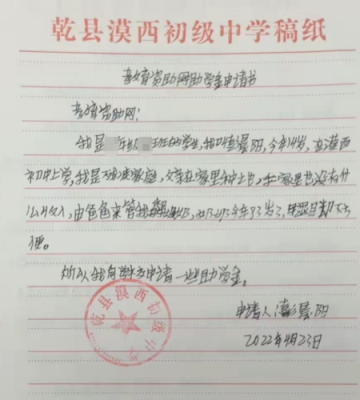 乾县漠西初级中学稿纸
教育资助网助学金申请书
教育资助网：
我是 年级 班的学生，我叫 晨阳，今年14岁，在漠西
初中上学，我是 家庭，父亲在家里种土地，在家里也没有什
么收入，由爸爸来管我 ， 今年93岁了， 不方
便。
所以我向 方申请一些助学金。
申请人 晨阳
2022年4月23日
乾县漠西初级中学